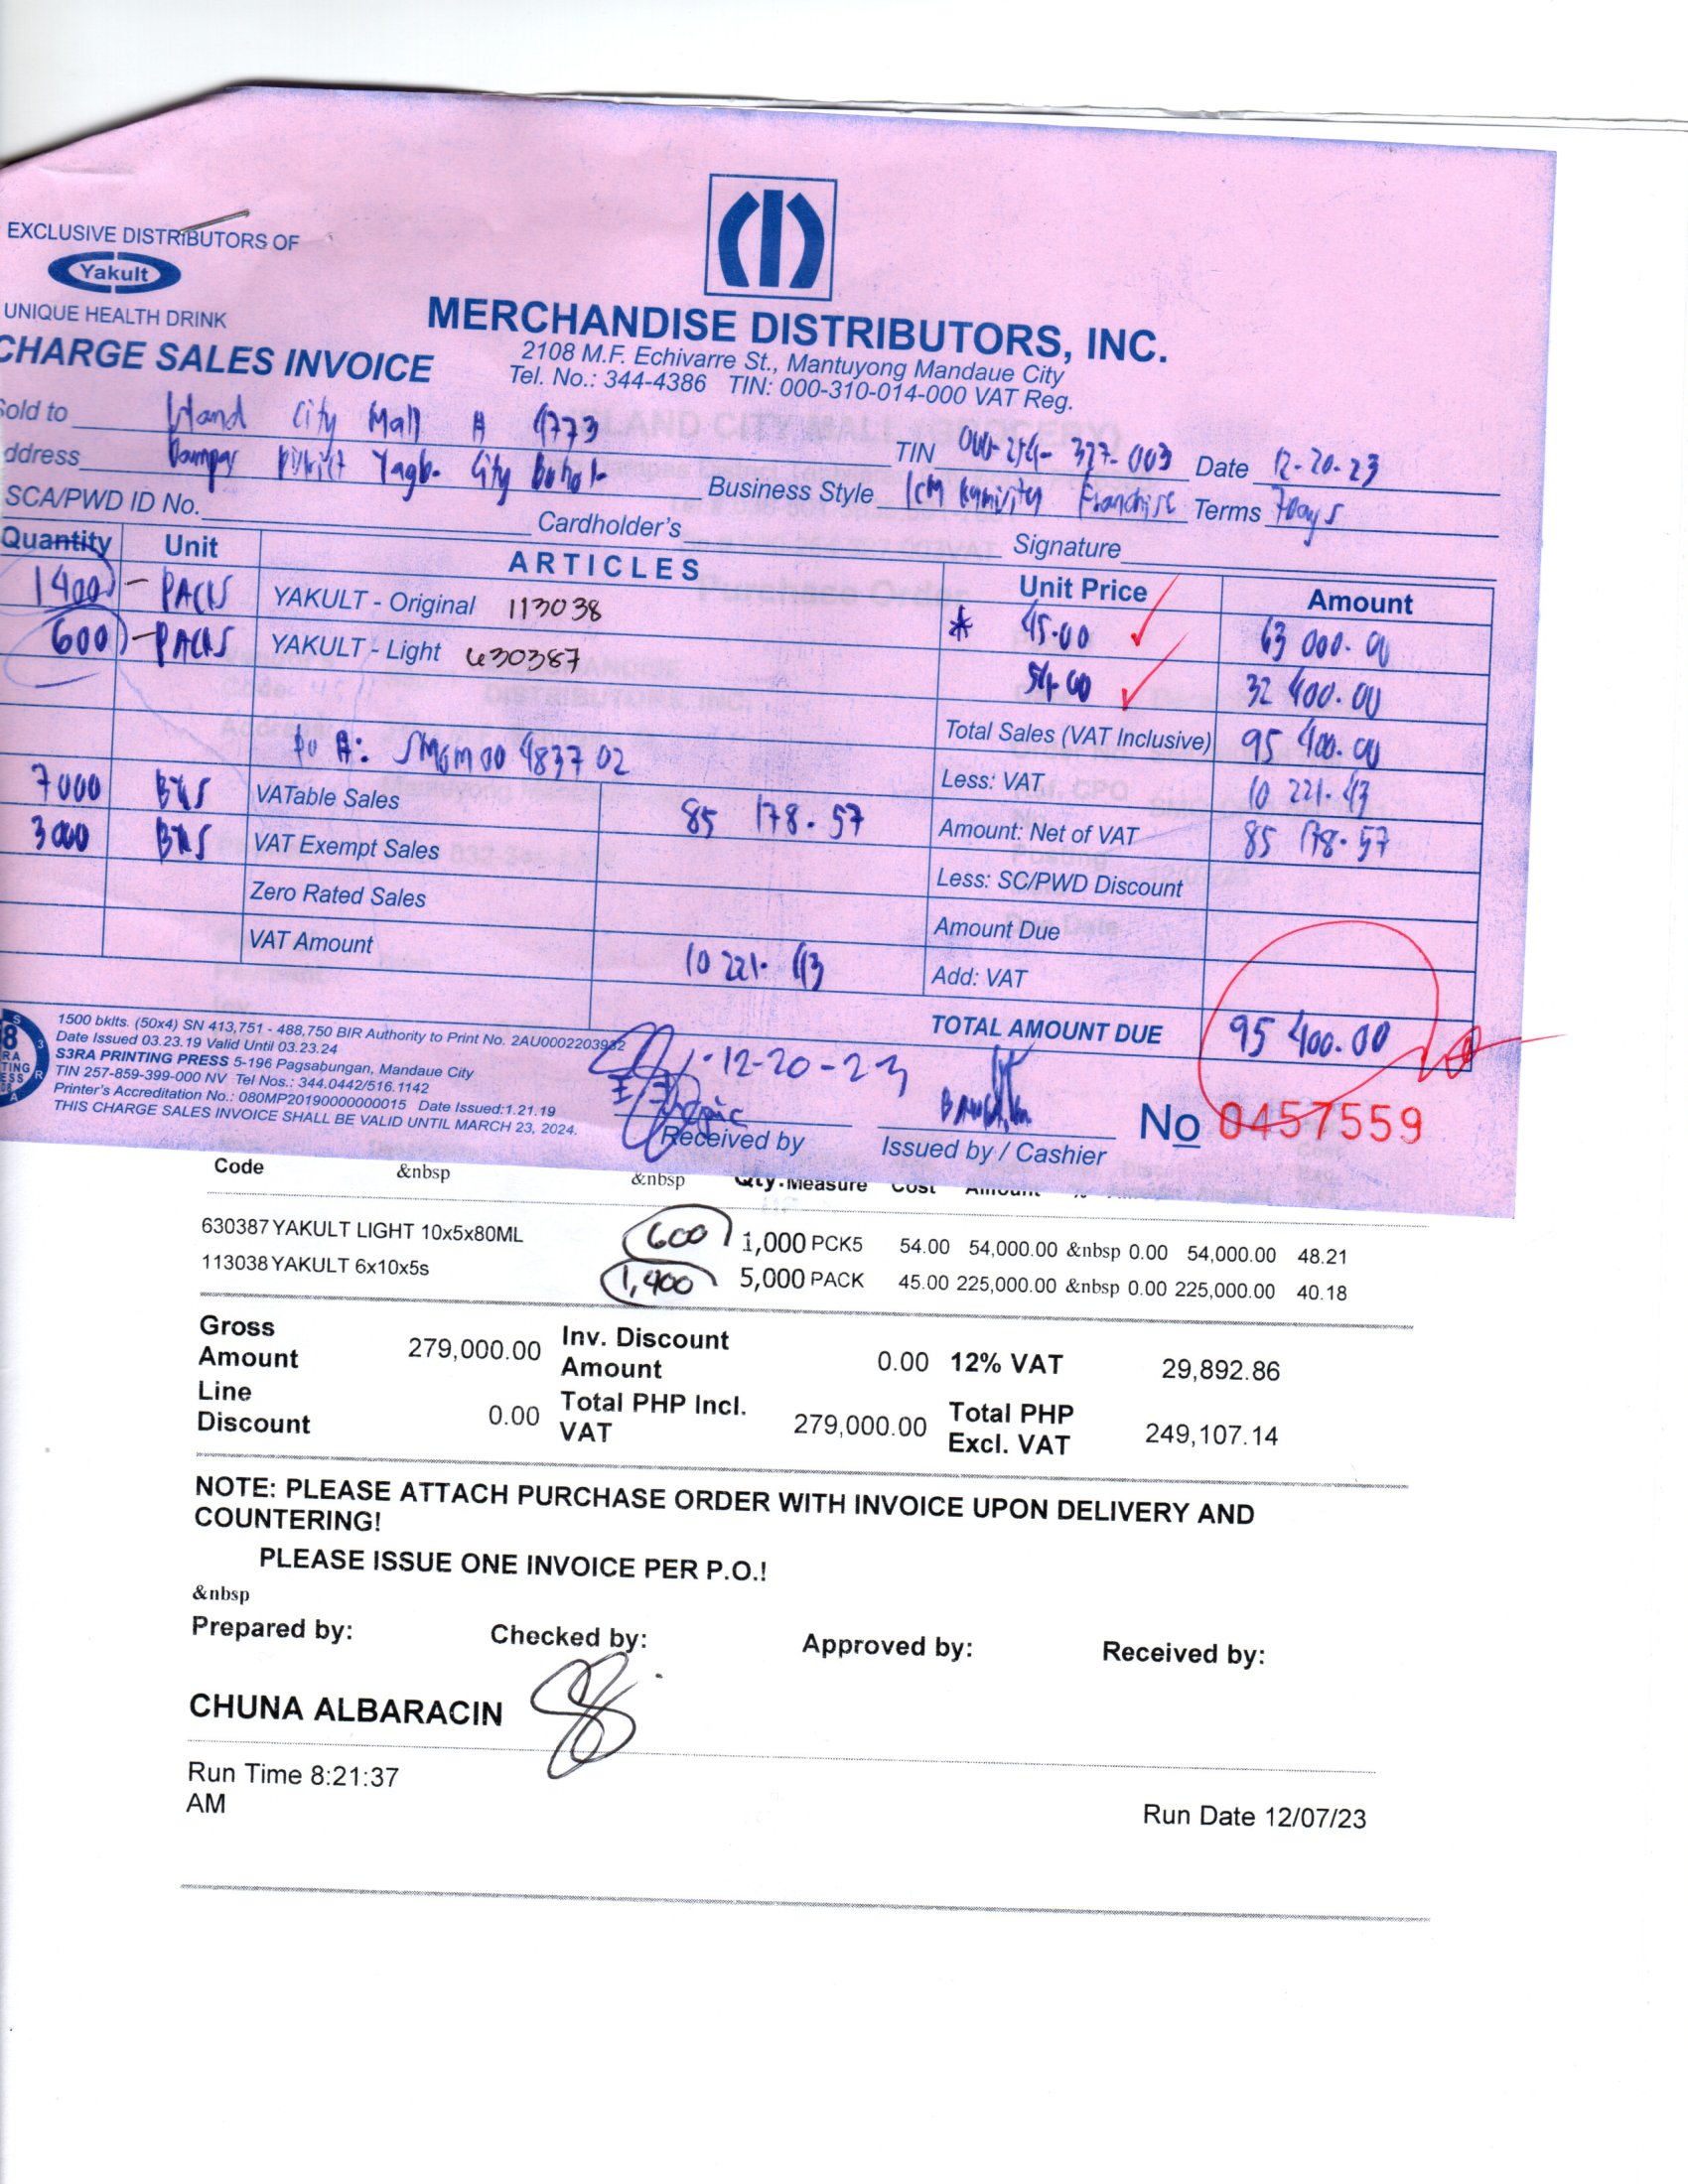 EXCLUSIVE DISTRIBUTORS OF
Yakult
UNIQUE HEALTH DRINK
MERCHANDISE DISTRIBUTORS, INC.
CHARGE SALES INVOICE
2108 M.F. Echivarre St., Mantuyong Mandaue City
Tel. No.: 344-4386 TIN: 000-310-014-000 VAT Reg.
Sold to Island City Mall A 4773
ddress Dampas District Tagb. City Bohol TIN 000-254-327-003 Date 12-20-23
SCA/PWD ID No. Cardholder's Business Style ICM Franchise Terms 7Days
Signature
Quantity Unit ARTICLES Unit Price Amount
1400 - PACKS YAKULT - Original 113038 * 45.00 63 000.00
600 - PACKS YAKULT - Light 630387 54.00 32 400.00
Total Sales (VAT Inclusive) 95 400.00
PO #: SMGM00 483702
Less: VAT 10 221.43
7000 BTLS VATable Sales 85 178.57 Amount: Net of VAT 85 178.57
3000 BTLS VAT Exempt Sales Less: SC/PWD Discount
Zero Rated Sales Amount Due
VAT Amount 10 221.43 Add: VAT
TOTAL AMOUNT DUE 95 400.00
1500 bklts. (50x4) SN 413,751 - 488,750 BIR Authority to Print No. 2AU0002203932
Date Issued 03.23.19 Valid Until 03.23.24
S3RA PRINTING PRESS 5-196 Pagsabungan, Mandaue City
TIN 257-859-399-000 NV Tel Nos.: 344.0442/516.1142
Printer's Accreditation No.: 080MP20190000000015 Date Issued:1.21.19
THIS CHARGE SALES INVOICE SHALL BE VALID UNTIL MARCH 23, 2024.
12-20-23
Received by Issued by / Cashier
No 0457559
Code &nbsp &nbsp Qty. Measure Cost Amount
630387 YAKULT LIGHT 10x5x80ML 600 1,000 PCK5 54.00 54,000.00 &nbsp 0.00 54,000.00 48.21
113038 YAKULT 6x10x5s 1,400 5,000 PACK 45.00 225,000.00 &nbsp 0.00 225,000.00 40.18
Gross Amount 279,000.00 Inv. Discount Amount 0.00 12% VAT 29,892.86
Line Discount 0.00 Total PHP Incl. VAT 279,000.00 Total PHP Excl. VAT 249,107.14
NOTE: PLEASE ATTACH PURCHASE ORDER WITH INVOICE UPON DELIVERY AND
COUNTERING!
PLEASE ISSUE ONE INVOICE PER P.O.!
&nbsp
Prepared by: Checked by: Approved by: Received by:
CHUNA ALBARACIN
Run Time 8:21:37
AM
Run Date 12/07/23